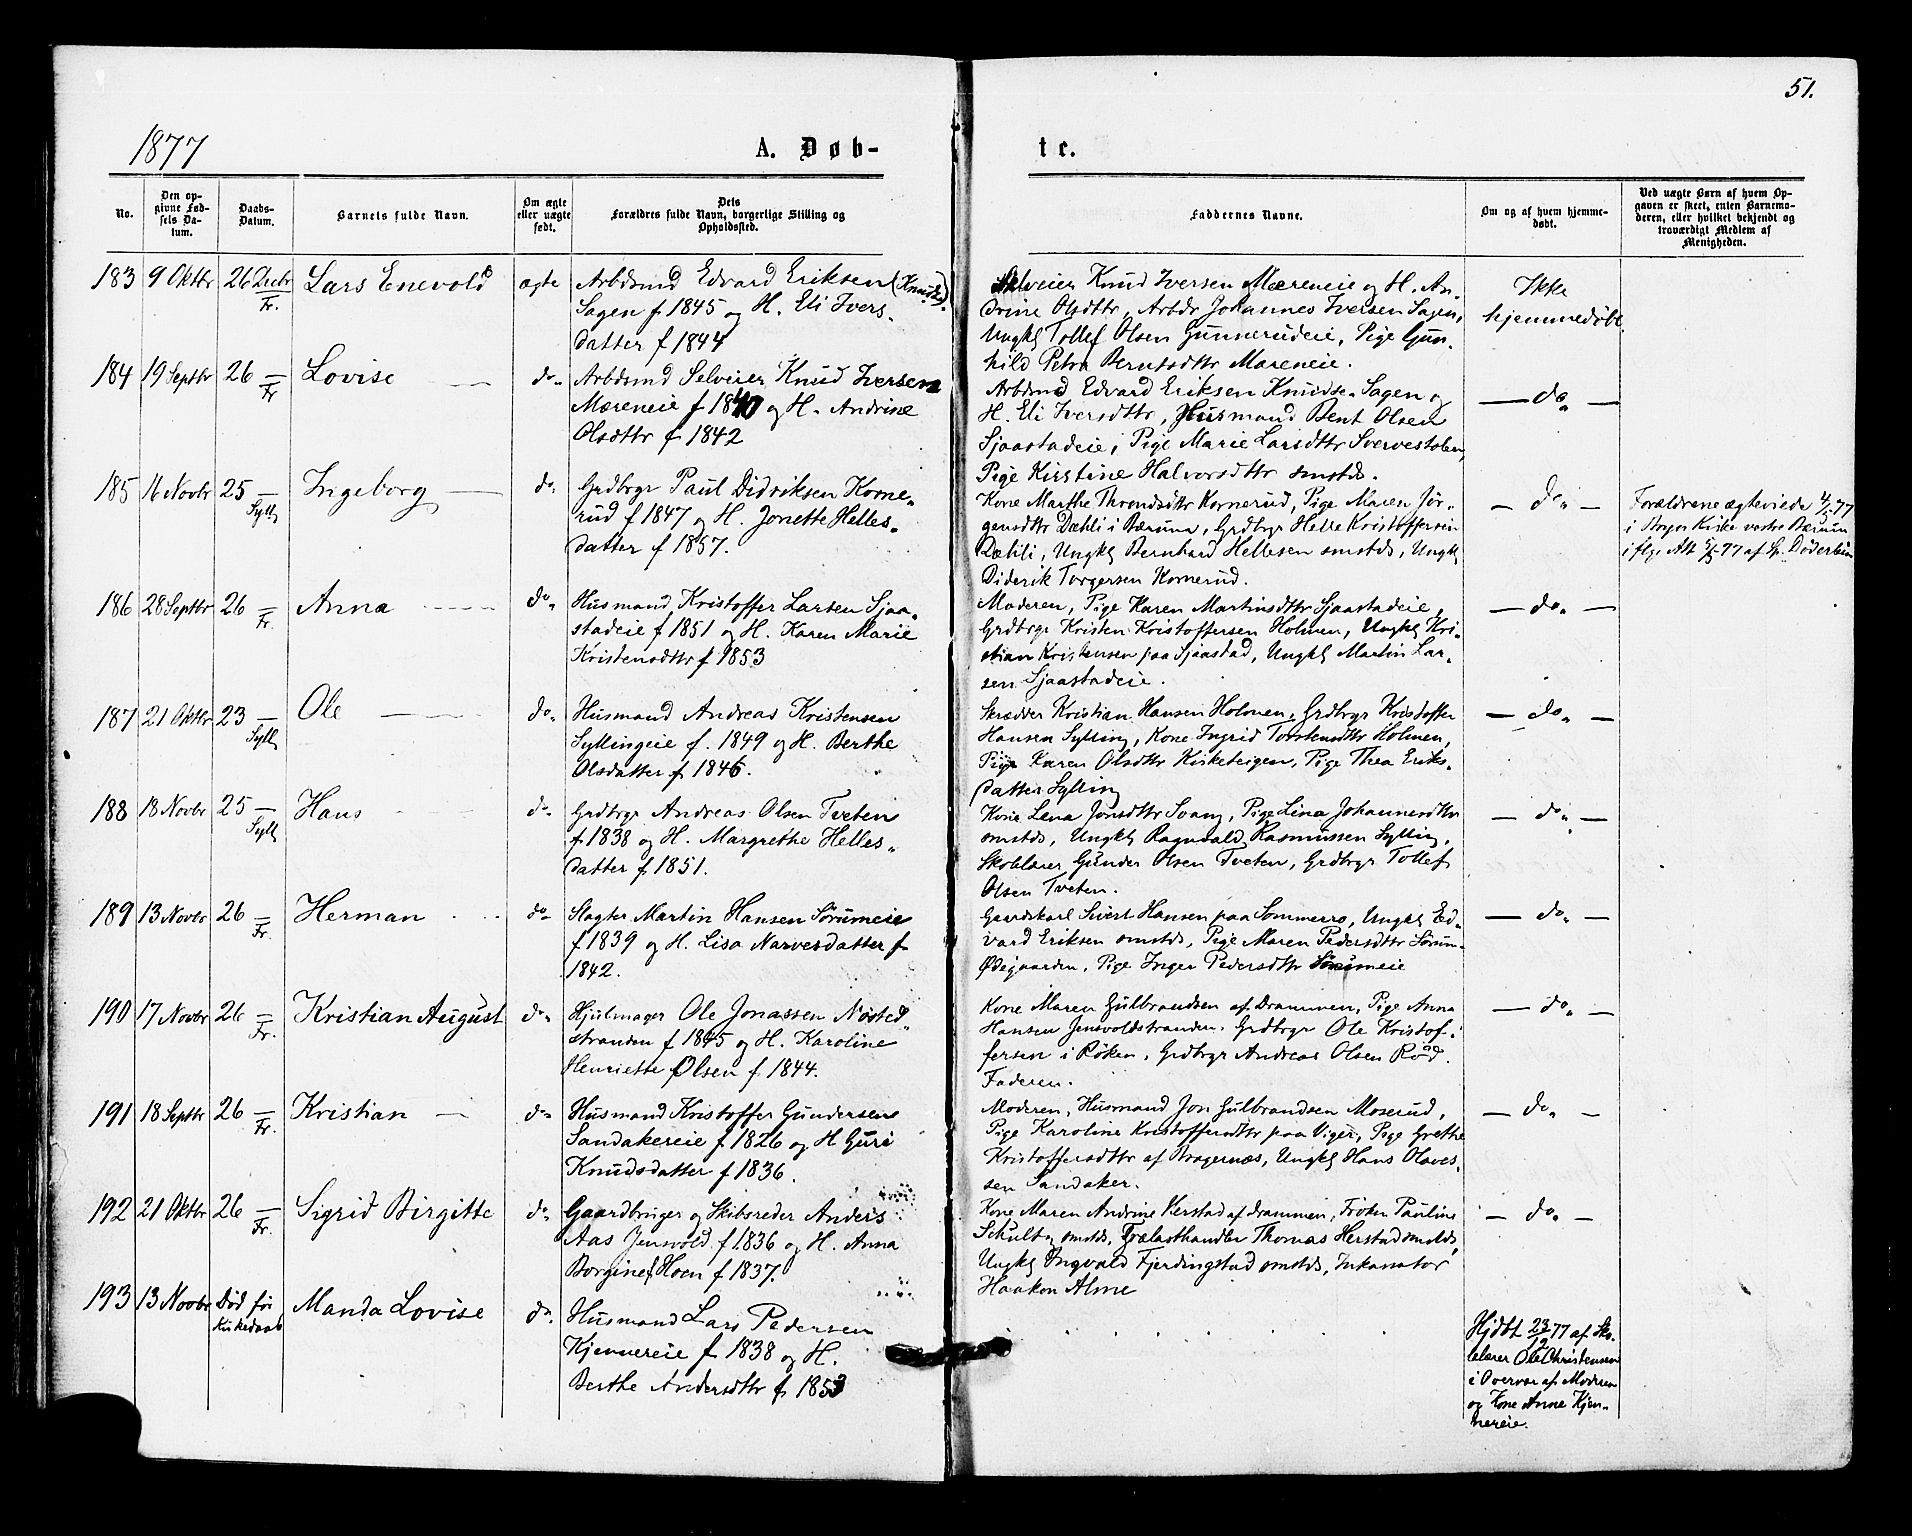 51.
1877
A. Døb-
te.
No.
Den op-
givne Fød-
sels Da-
tum.
Daabs-
Datum.
Barnets fulde Navn.
Om ægte
eller uægte
født.
Dets
Forældres fulde Navn, borgerlige Stilling og
Opholdssted.
Faddernes Navne.
Om og af hvem hjemme-
døbt.
Ved uægte Børn af hvem Op-
gaven er skeet, enten Barnemo-
deren, eller hvilket bekjendt og
troværdigt Medlem af
Menigheden.
183 9 Oktbr 26 Decbr Fr. Lars Enevold ægte
Arbdsmd Edvard Eriksen (Knudse)
Sagen f 1845 og H. Eli Ivers-
datter f 1844
Selveier Knud Iversen Mæreneie og H. An-
drine Olsdttr, Arbdr Johannes Iversen Sagen,
Ungkl Tollef Olsen Gunnerudeie, Pige Gun-
hild Petra Berntsdttr Mareneie.
Ikke
hjemmedøbt
184 19 Septbr 26 — Fr Lovise — do-
Arbdsmd Selveier Knud Iversen
Mæreneie f 1840 og H. Andrine
Olsdttr f 1842
Arbdsmd Edvard Eriksen Knudse-Sagen og
H. Eli Iversdttr, Husmand Bent Olsen
Sjaastadeie, Pige Marie Larsdttr Svervestolen,
Pige Kirstine Halvorsdttr smstds.
— do. —
185 16 Novbr 25 — Syll Ingeborg — do-
Grdbrgr Paul Didriksen Korne-
rud f 1847 og H. Jonette Helles-
datter f 1857.
Kone Marthe Throndsdttr Kornerud, Pige Maren Jør-
gensdttr Dæhli i Bærum, Grdbrgr Helle Kristoffersen
Dæhli, Ungkl Bernhard Hellesen smstds, Ungkl
Diderik Torgersen Kornerud.
— do. —
Forældrene ægteviede 4/5 77
i Bryns Kirke vestre Bærum
iflge Att 5/5-77 af Sp. Døderlein
186 28 Septbr 26 — Fr. Anna — do-
Husmand Kristoffer Larsen Sjaa-
stadeie f 1851 og H. Karen Marie
Kristensdttr f 1853
Moderen, Pige Karen Martinsdttr Sjaastadeie,
Grdbrgr Kristen Kristoffersen Holmen, Ungkl Kri-
stian Kristensen paa Sjaastad, Ungkl Martin Lar-
sen Sjaastadeie.
— do. —
187 21 Oktbr 23 — Syll Ole — do-
Husmand Andreas Kristensen
Syllingeie f. 1849 og H. Berthe
Olsdatter f 1846.
Skrædder Kristian Hansen Holmen, Grdbrgr Kristoffer
Hansen Sylling, Kone Ingrid Torstensdttr Holmen,
Pige Karen Olsdttr Kirketeigen, Pige Thea Eriks-
datter Sylling
— do. —
188 18 Novbr 25 — Syll Hans do-
Grdbrgr Andreas Olsen Tveten
f 1838 og H. Margrethe Helles-
datter f 1851.
Kone Lena Jonsdttr Svang, Pige Lina Johannesdttr
smstds, Ungkl Ragnvald Rasmussen Sylling,
Skolelærer Gunder Olsen Tveten, Grdbrgr Tollef
Olsen Tveten.
— do. —
189 13 Novbr 26 — Fr. Herman do-
Slagter Martin Hansen Sørumeie
f 1839 og H. Lisa Narvesdatter f
1842.
Gaardskarl Sivert Hansen paa Sommerro, Ungkl Ed-
vard Eriksen smstds, Pige Maren Pedersdttr Sørum-
Ødegaarden, Pige Inger Pedersdttr Sørumeie
— do. —
190 17 Novbr 26 — Fr. Kristian August do-
Hjulmager Ole Jonassen Nøsted-
stranden f 1845 og H. Karoline
Henriette Olsen f 1844.
Kone Maren Gulbrandsen af Drammen, Pige Anna
Hansen Jensvoldstranden, Grdbrgr Ole Kristof-
fersen i Røken, Grdbrgr Andreas Olsen Rød.
Faderen.
— do. —
191 18 Septbr 26 — Fr. Kristian — do-
Husmand Kristoffer Gundersen
Sandakereie f 1826 og H Guri
Knudsdatter f 1836.
Moderen, Husmand Jon Gulbrandsen Moserud,
Pige Karoline Kristoffersdttr paa Viger, Pige Grethe
Kristoffersdttr af Bragernæs, Ungkl Hans Olaves-
sen Sandaker.
— do. —
192 21 Oktbr 26 — Fr. Sigrid Birgitte do-
Gaardbruger og Skibsreder Anders
Aas Jensvold f 1836 og H. Anna
Borgine f Hoen f 1837.
Kone Maren Andrine Kerstad af Drammen, Frøken Pauline
Schultz smstds, Trælasthandler Thomas Herstad smstds,
Ungkl Ingvald Fjerdingstad smstds, Inkasator
Haakon Alme
— do. —
193 13 Novbr Død før
Kirkedaab Manda Lovise do-
Husmand Lars Pedersen
Kjennereie f 1838 og H.
Berthe Andersdttr f 1853
Hjdbt 23/12 77 af Sko-
lelærer Ole Christensen
i Overvær af Moderen
og Kone Anne Kjen-
nereie.